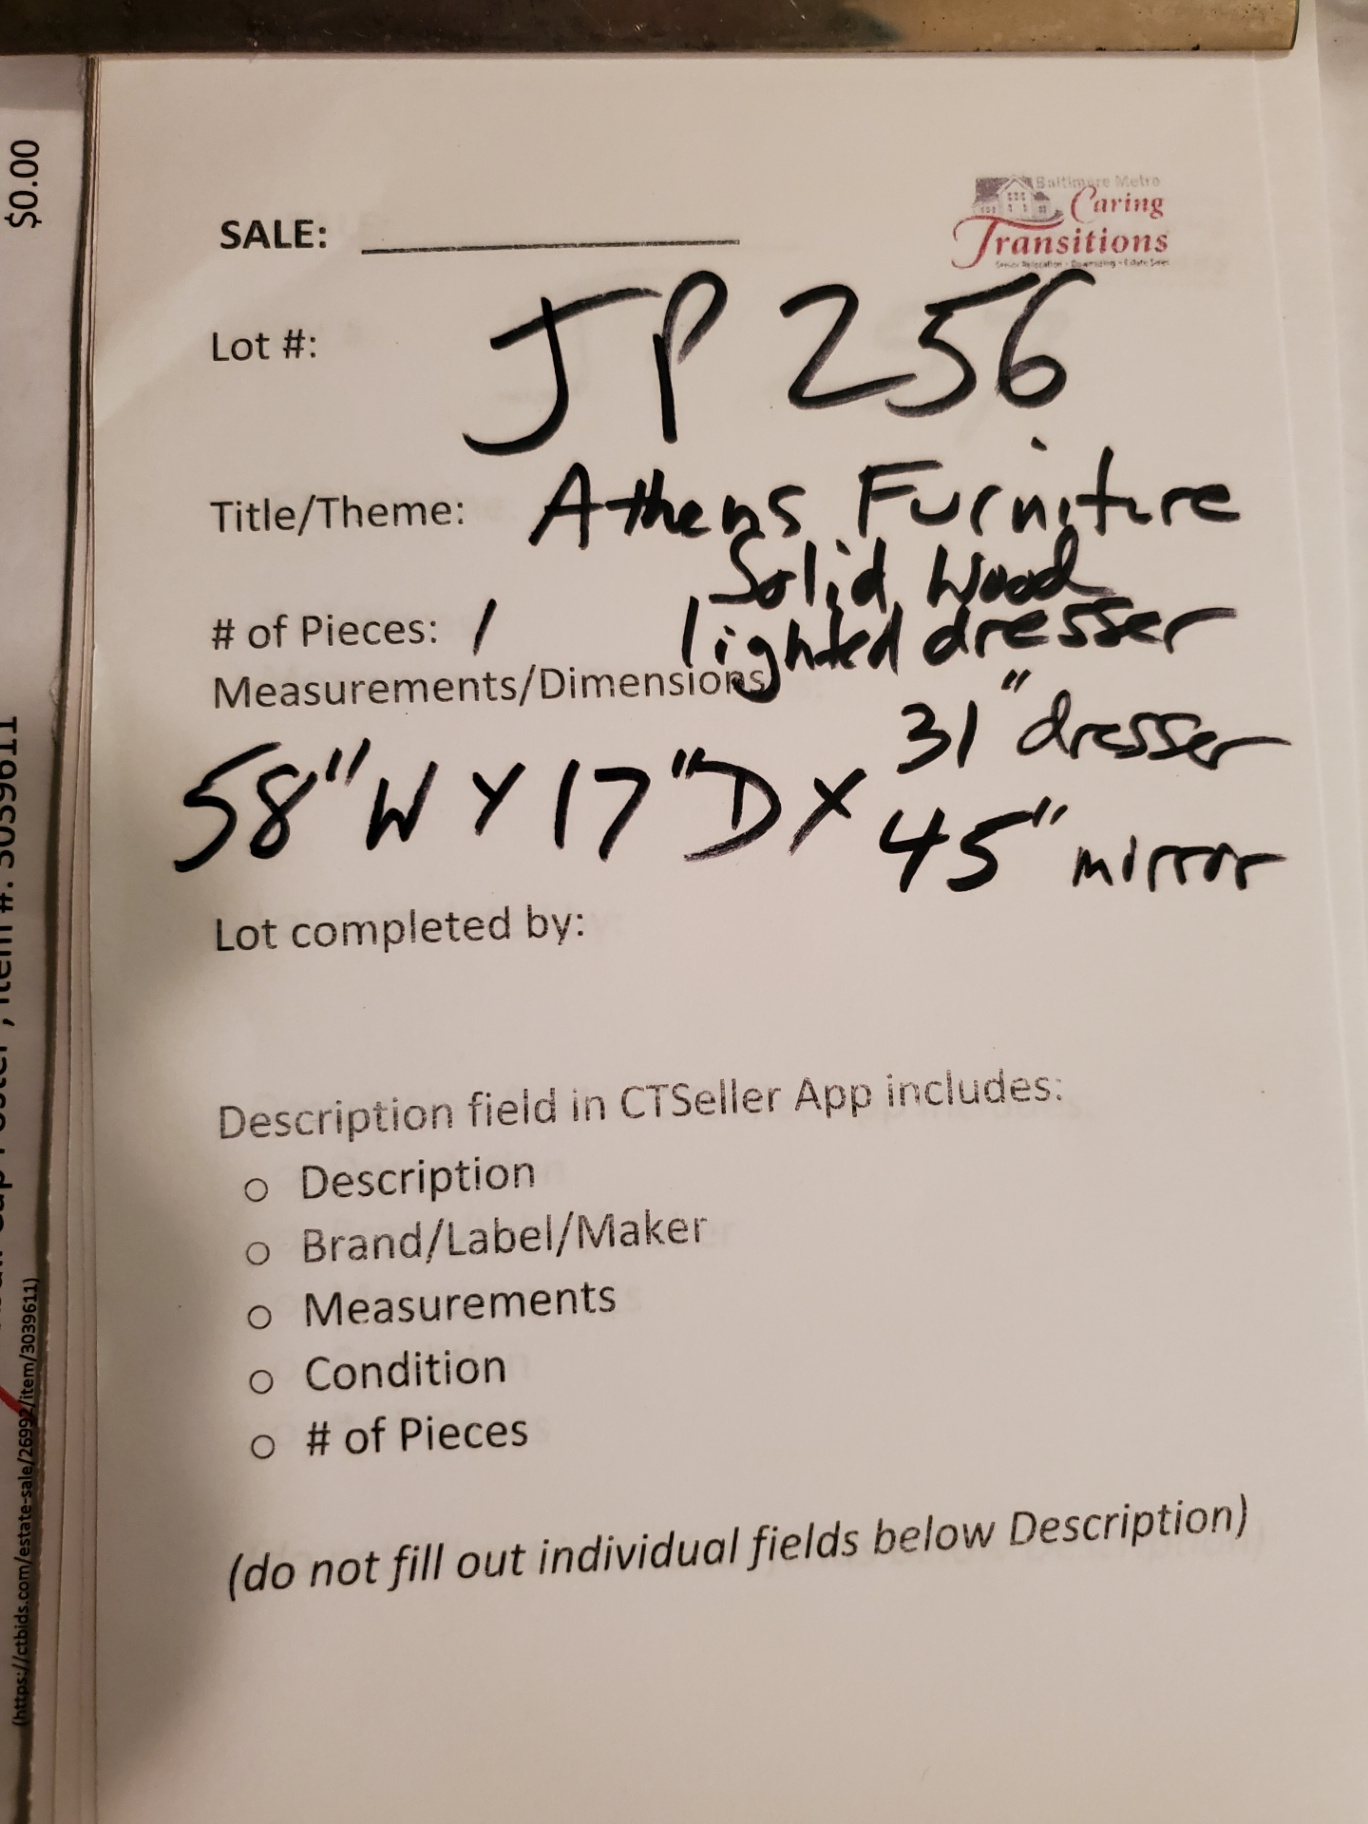 $0.00
Baltimore Metro
Caring
Transitions
Senior Relocation • Downsizing • Estate Sales
SALE:
Lot #: JP 256
Title/Theme: Athens Furniture
Solid Wood
# of Pieces: 1 lighted dresser
Measurements/Dimensions
31" dresser
58" W X 17" D X
45" mirror
Lot completed by:
Description field in CTSeller App includes:
o Description
o Brand/Label/Maker
o Measurements
o Condition
o # of Pieces
(do not fill out individual fields below Description)
Item #: 3039611
(https://ctbids.com/estate-sale/26992/item/3039611)